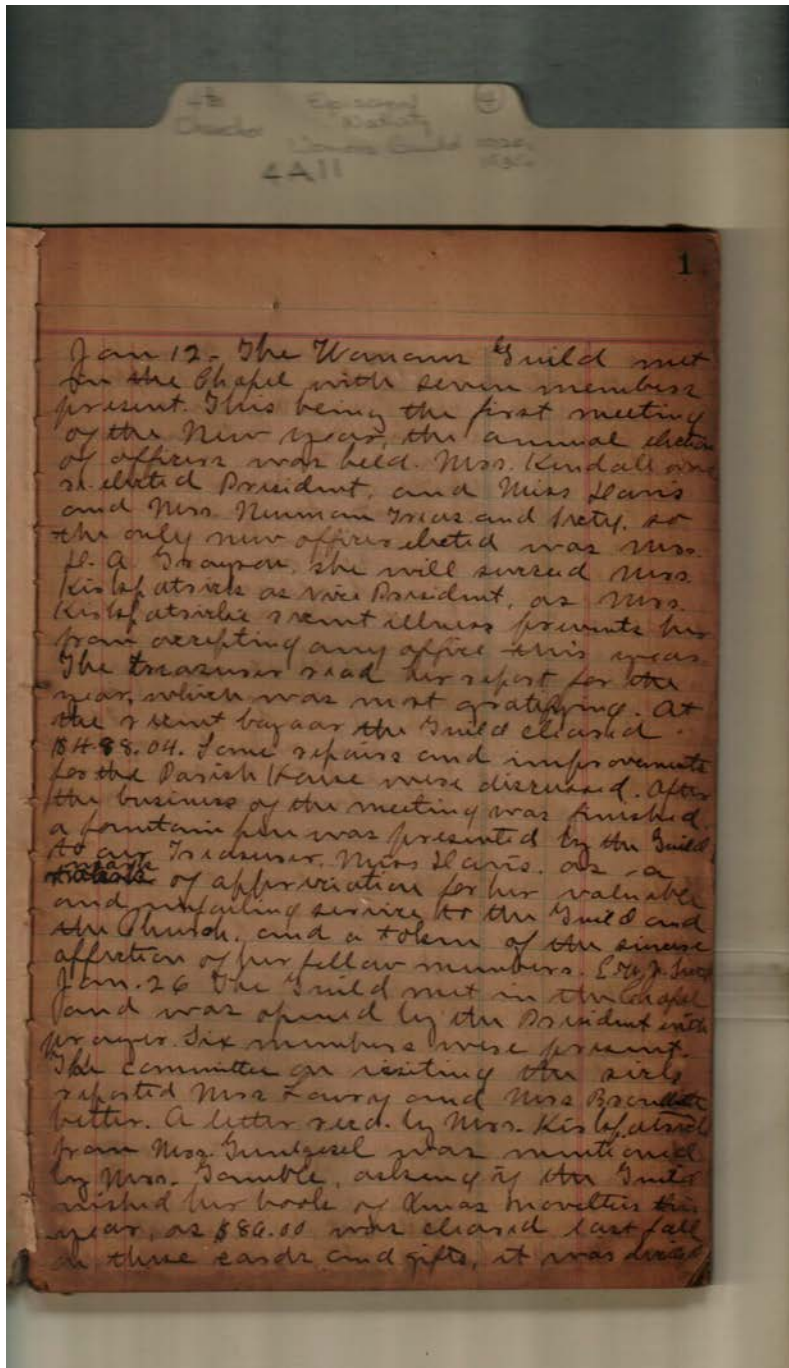 Episcopal
4A11
1
Jan 12 - The Womans Guild met
in the Chapel with seven members
present. This being the first meeting
of the New year, the annual election
of officers was held. Mrs. Kendall was
re-elected President, and Miss Davis
and Mrs. Neuman Treas. and Secty. so
the only new officer elected was Mrs.
D. A. Grayson, she will succeed Mrs.
Kirkpatrick as Vice President, as Mrs.
Kirkpatricks recent illness prevents her
from accepting any office this year.
The treasurer read her report for the
year, which was most gratifying. At
the recent bazaar the Guild cleared
$488.04. Some repairs and improvements
for the Parish House were discussed. After
the business of the meeting was finished,
a fountain pen was presented by the Guild
to our Treasurer, Miss Davis, as a
mark of appreciation for her valuable
and unfailing service to the Guild and
the Church, and a token of the sincere
affection of her fellow members.
Jan. 26 The Guild met in the Chapel
and was opened by the President with
prayer. Six members were present.
The committee on visiting the sick
reported Mrs Lowry and Mrs
better. A letter recd. by Mrs. Kirkpatrick
from Mrs. was mentioned
by Mrs. Gamble, asking if the Guild
wished her book of Xmas novelties this
year, as $86.00 was cleared last fall
on these cards and gifts, it was decided